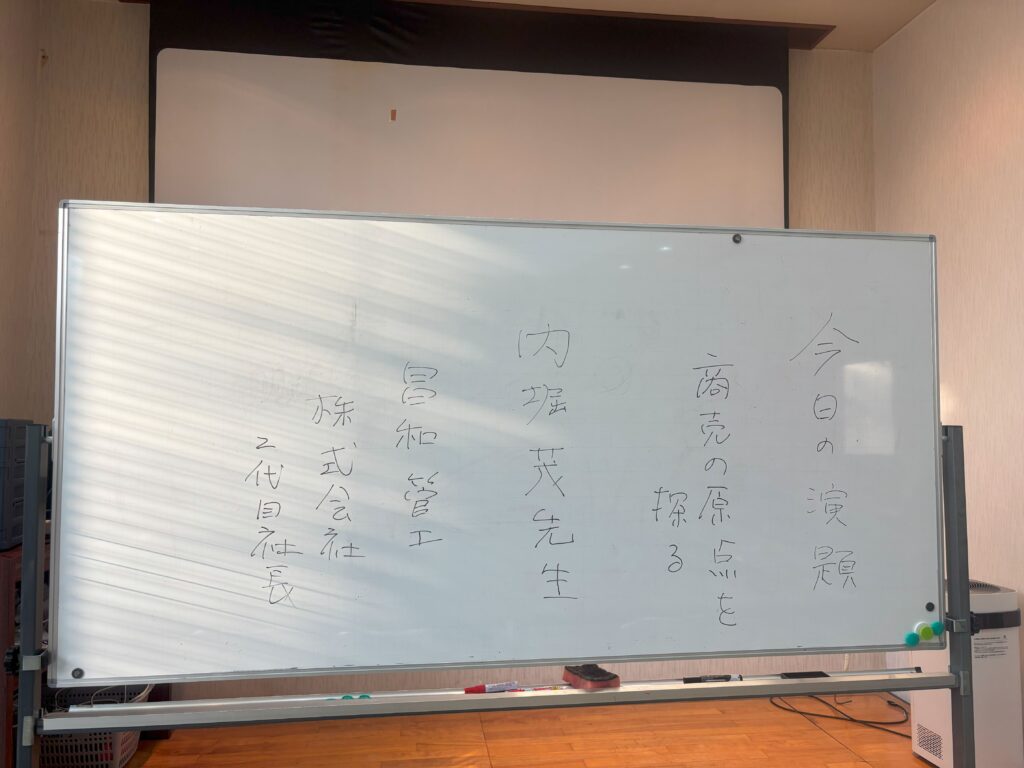 今日の演題
商売の原点を
探る
内堀茂先生
昌和管工
株式会社
2代目社長